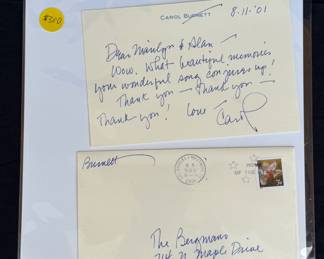 $300
CAROL BURNETT
8·11·'01
Dear Marilyn & Alan —
Wow. What beautiful memories
your wonderful song conjures up!
Thank you — Thank you —
Thank you! Love —
Carol
Burnett
The Bergmans
N. Maple Drive